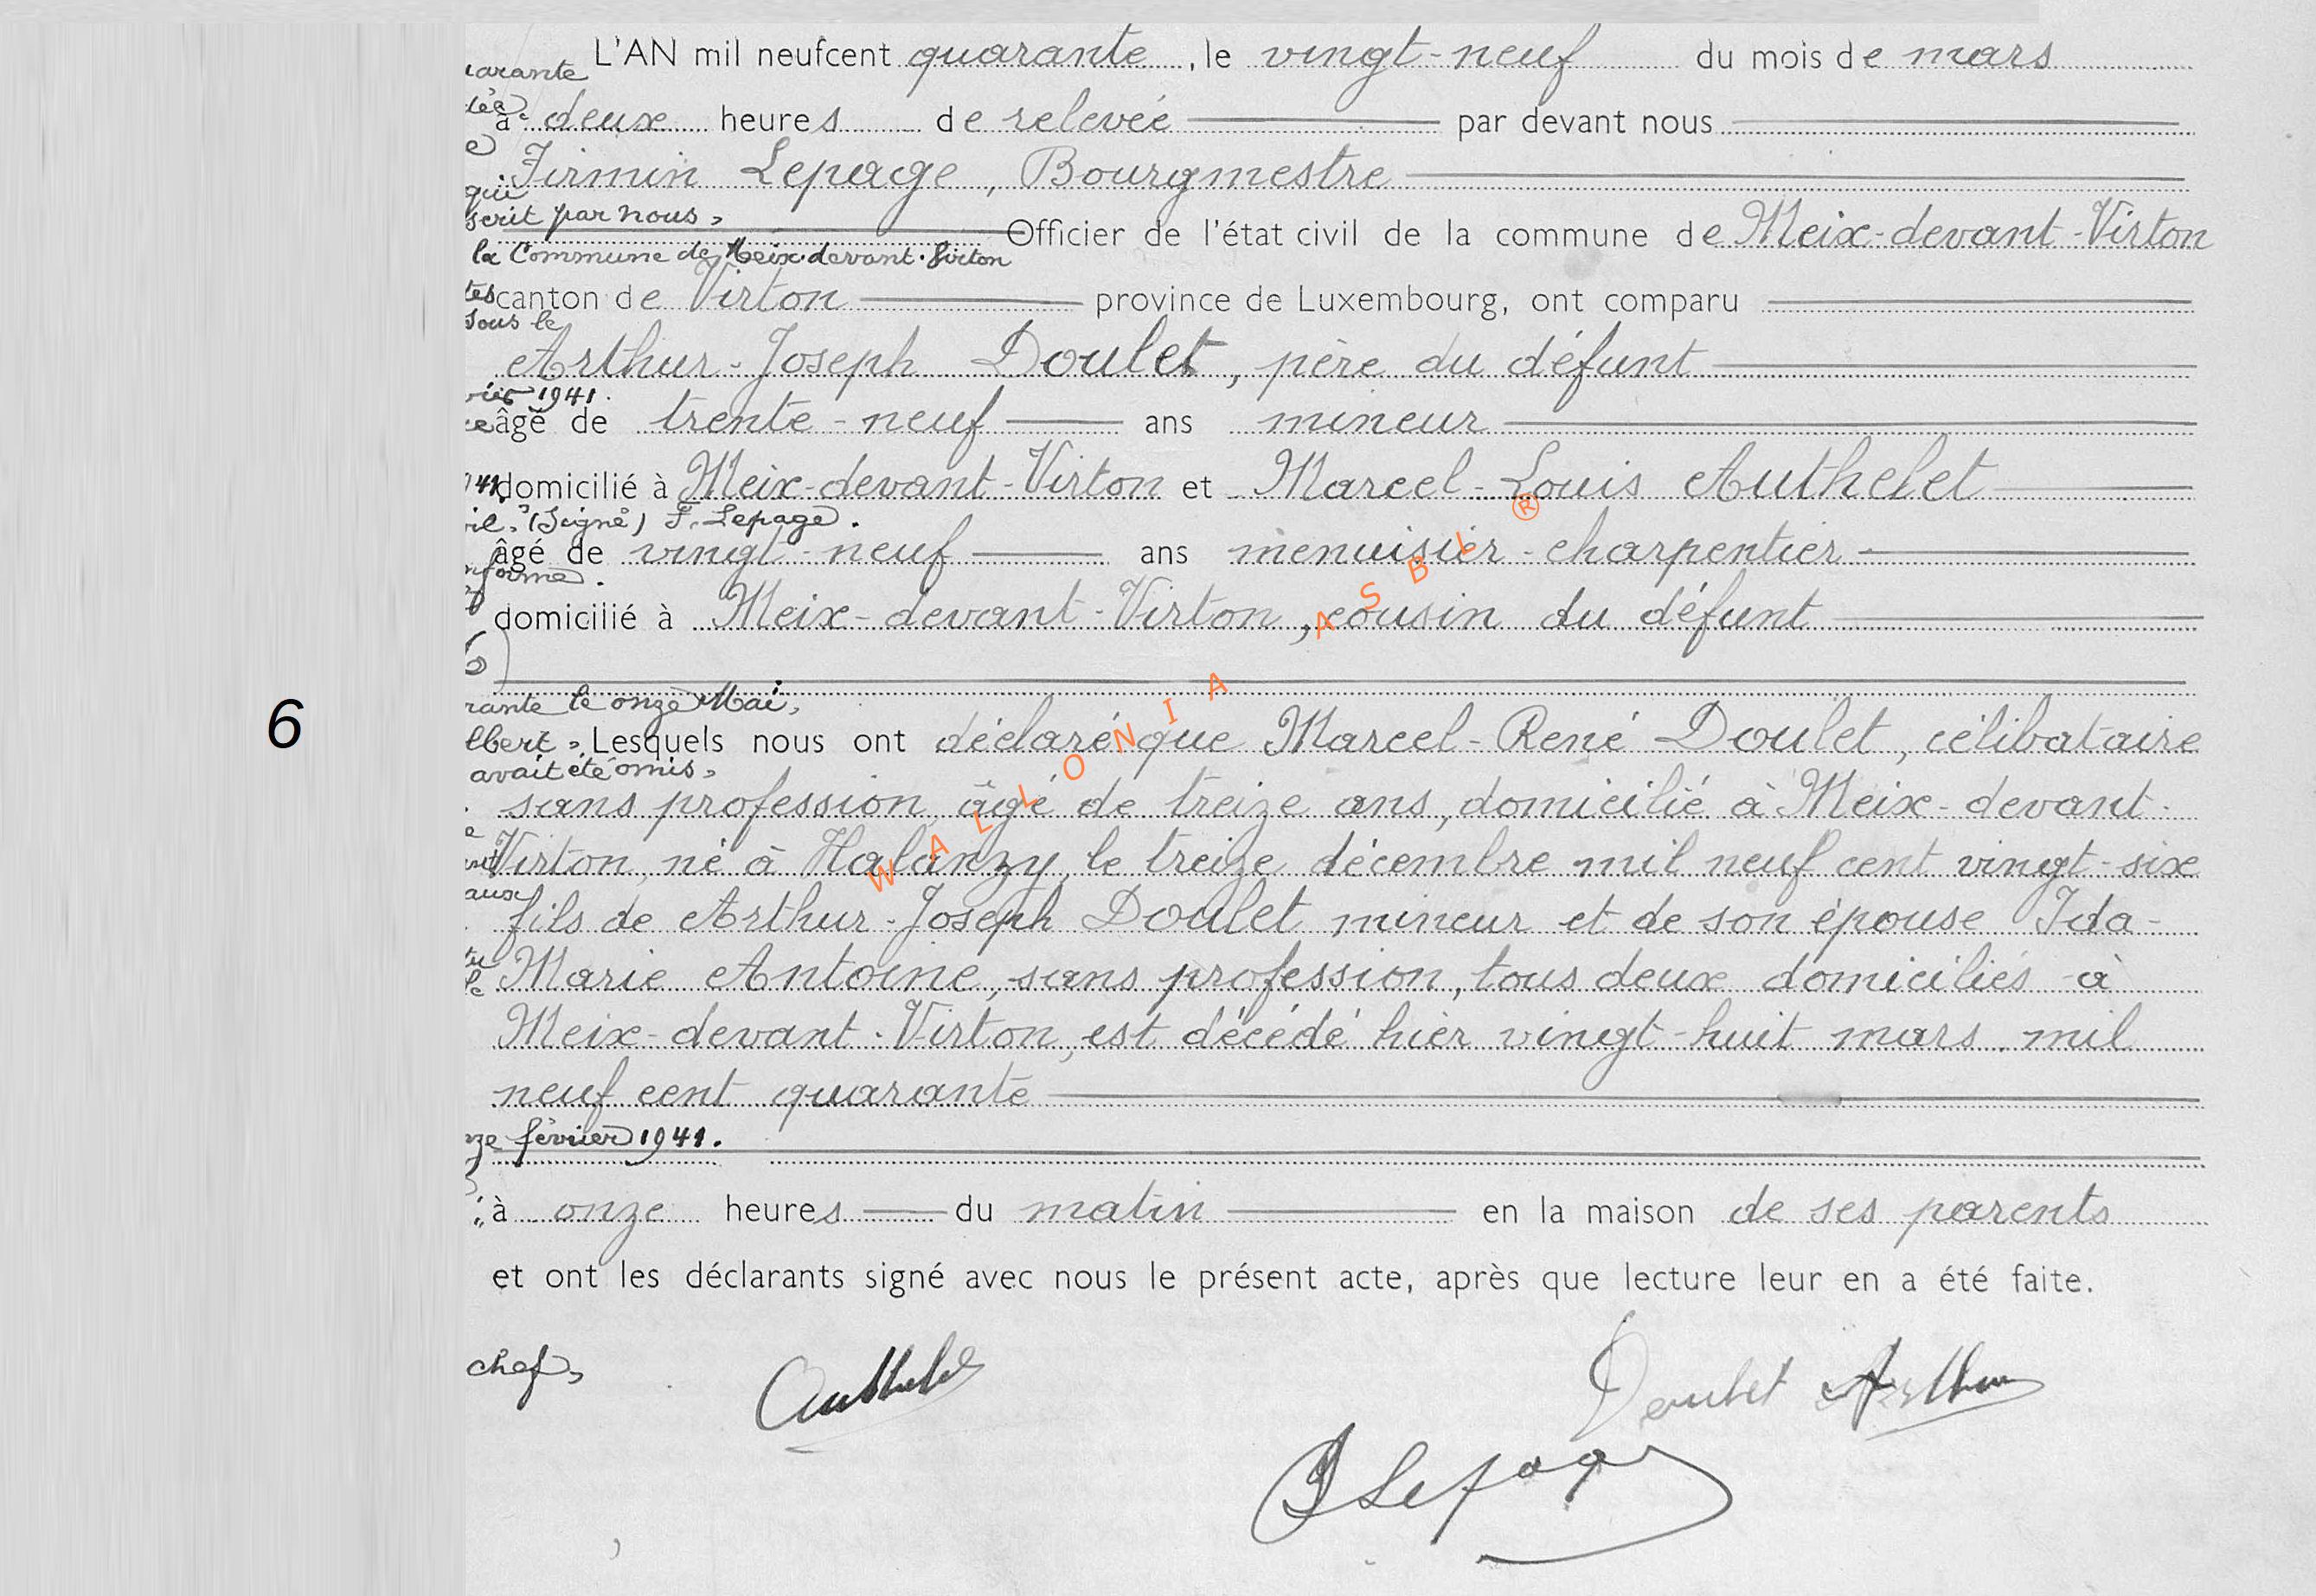 L'AN mil neufcent quarante, le vingt-neuf du mois de mars
à deux heures de relevée par devant nous
Firmin Lepage, Bourgmestre
qui
scrit par nous,
Officier de l'état civil de la commune de Meix-devant-Virton
la Commune de Meix-devant-Virton
canton de Virton province de Luxembourg, ont comparu
sous le
Arthur-Joseph Doulet, père du défunt
1941.
âgé de trente-neuf ans mineur
domicilié à Meix-devant-Virton et Marcel-Louis Authelet
(Signé) F. Lepage.
âgé de vingt-neuf ans menuisier-charpentier
domicilié à Meix-devant-Virton, cousin du défunt
rante le onze Mai,
6
lbert, Lesquels nous ont déclaré que Marcel-René Doulet, célibataire
avait été omis,
sans profession, âgé de treize ans, domicilié à Meix-devant-
Virton, né à Halanzy, le treize décembre mil neuf cent vingt-six
aux
fils de Arthur-Joseph Doulet mineur et de son épouse Ida-
Marie Antoine, sans profession, tous deux domiciliés à
Meix-devant-Virton, est décédé hier vingt-huit mars mil
neuf cent quarante
ze février 1941.
à onze heures du matin en la maison de ses parents
et ont les déclarants signé avec nous le présent acte, après que lecture leur en a été faite.
chef,
Authelet
Doulet Arthur
F Lepage
WALLONIA ASBL ®